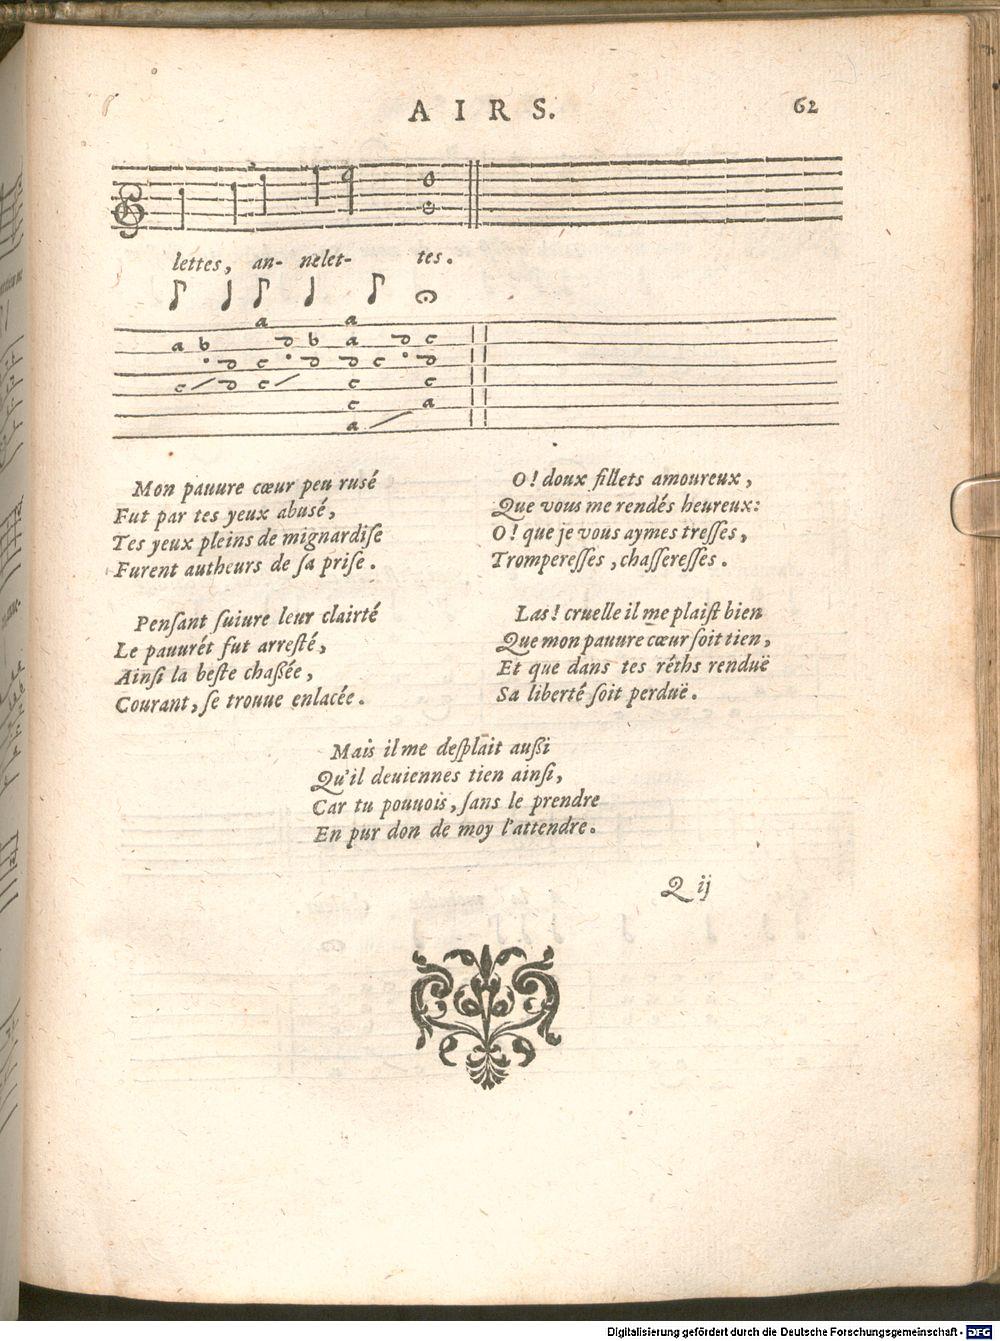 AIRS.
62
lettes, an- nelet- tes.
Mon pauure cœur peu rusé
Fut par tes yeux abusé,
Tes yeux pleins de mignardiſe
Furent autheurs de ſa priſe.
Penſant ſuiure leur clairté
Le pauurét fut arreſté,
Ainſi la beſte chaßée,
Courant, ſe trouue enlacée.
O! doux fillets amoureux,
Que vous me rendés heureux:
O! que je vous aymes treſſes,
Trompereſſes, chaſſereſſes.
Las! cruelle il me plaiſt bien
Que mon pauure cœur ſoit tien,
Et que dans tes réths renduë
Sa liberté ſoit perduë.
Mais il me deſplait außi
Qu'il deuiennes tien ainſi,
Car tu pouuois, ſans le prendre
En pur don de moy l'attendre.
Q ij
Digitalisierung gefördert durch die Deutsche Forschungsgemeinschaft - DFG